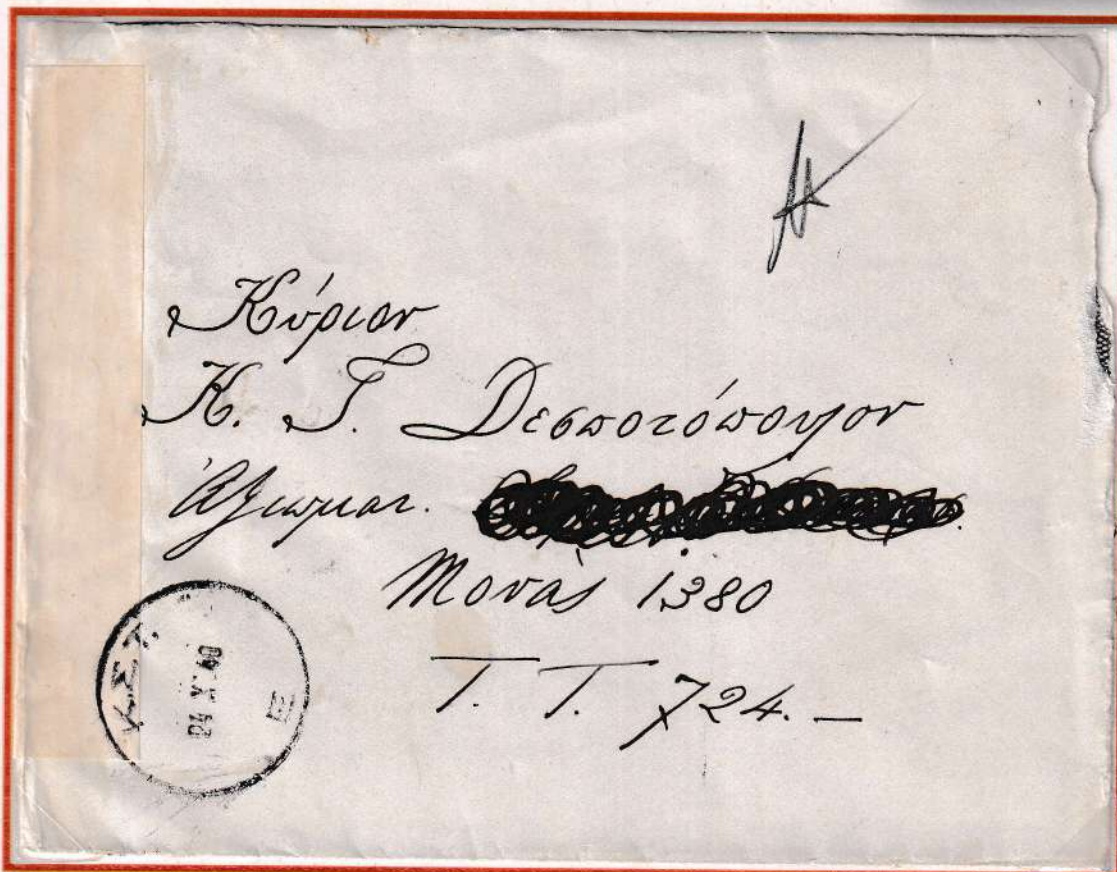 Κύριον
Κ. Γ. Δεσποτόπουλον
Ἀξιωματ.
Μονὰς 1380
Τ. Τ. 724. —
Κ.Σ.Τ.
24 X 40